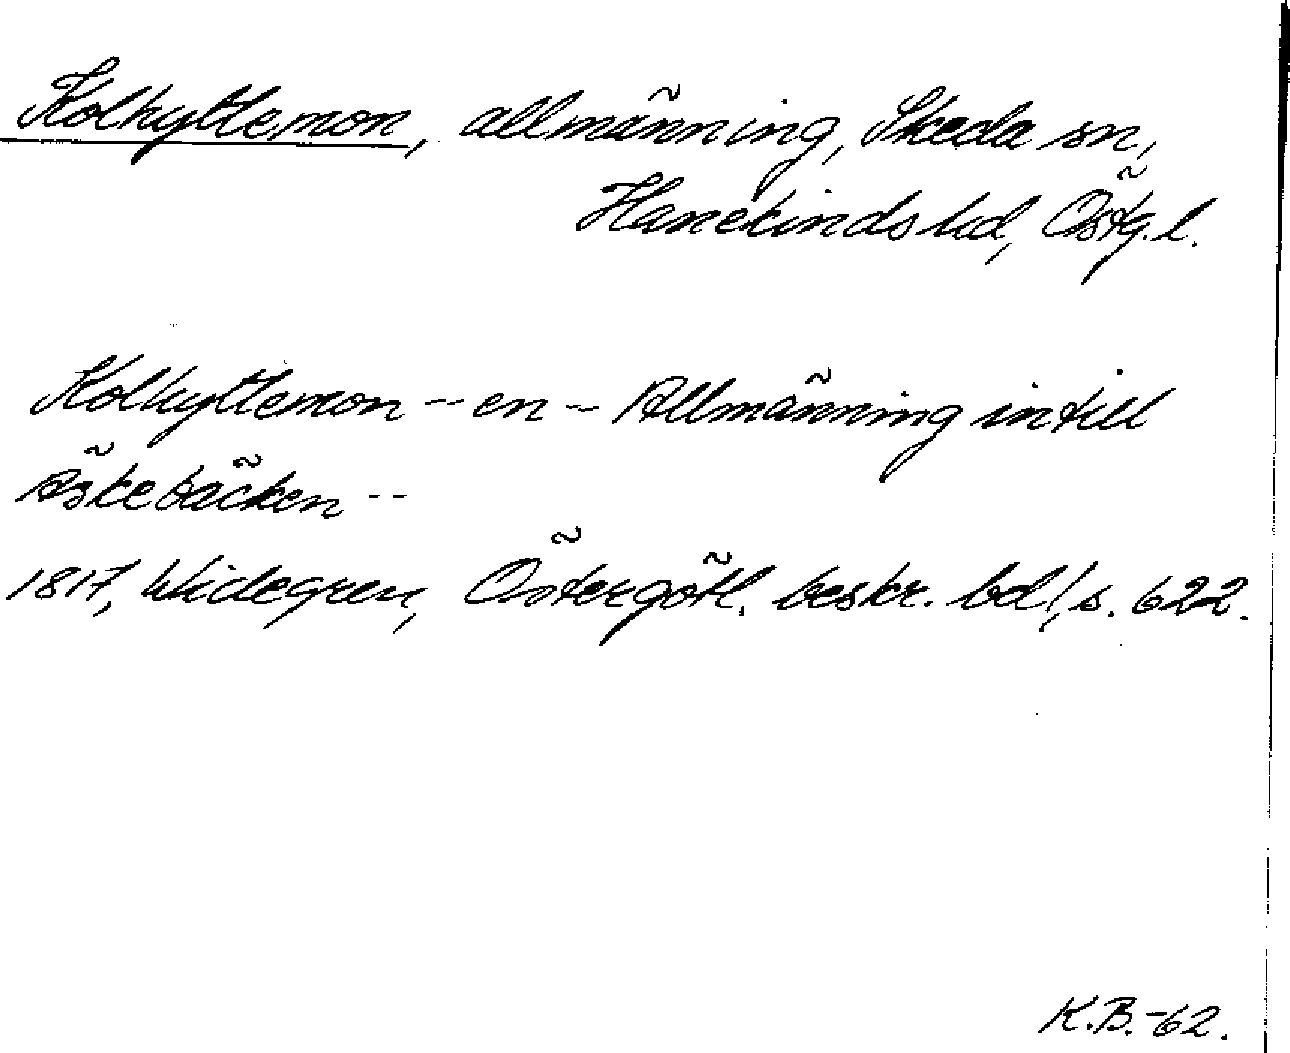 Kolhyttemon, allmänning, Skeda sn,
Hanekinds hd, Östg. l.
Kolhyttemon -- en -- Allmänning intill
Äskebäcken --
1817, Widegren, Östergötl. beskr. bd 1, s. 622.
K.B. -62.